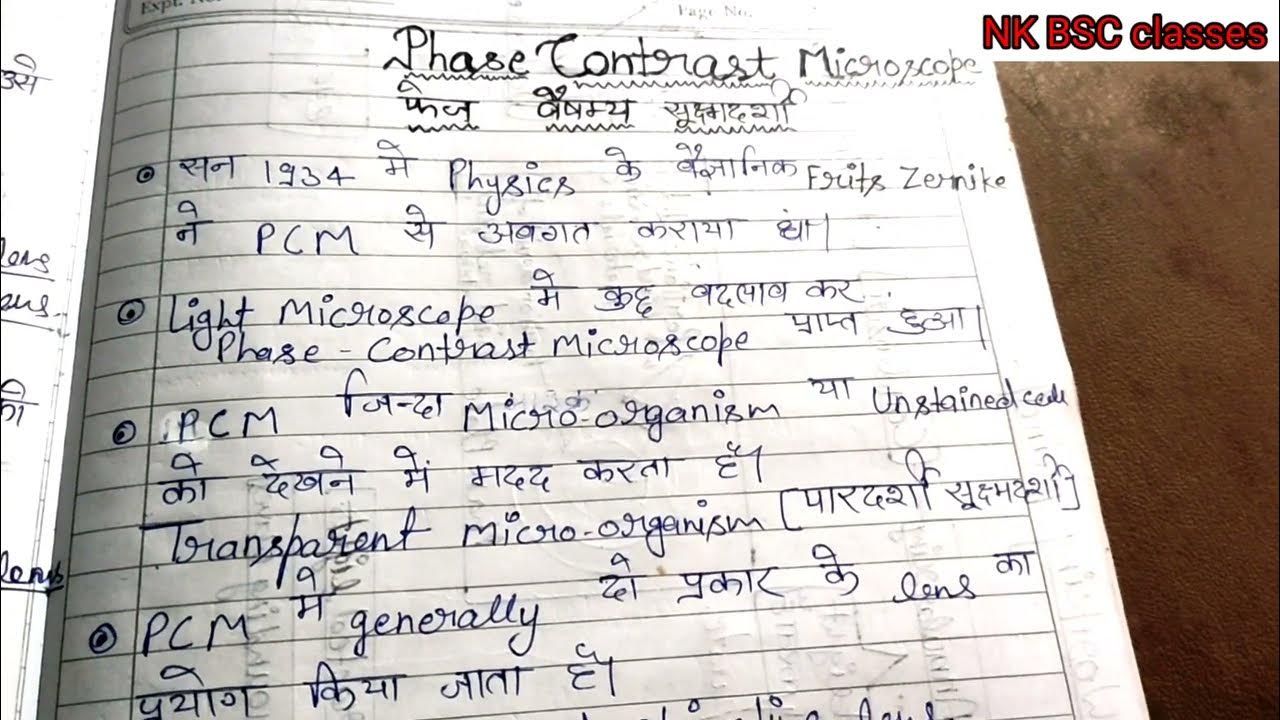 Page No.
NK BSC classes
Phase Contrast Microscope
फेज वैषम्य सूक्ष्मदर्शी
सन 1934 मे Physics के वैज्ञानिक Frits Zernike
ने PCM से अवगत कराया था।
Light Microscope मे कुछ बदलाव कर
Phase - Contrast Microscope प्राप्त हुआ।
PCM जिन्दा Micro-organism या Unstained cell
को देखने में मदद करता है।
Transparent micro-organism [पारदर्शी सूक्ष्मदर्शी]
PCM मे generally दो प्रकार के lens का
प्रयोग किया जाता है।
उसे
lens
lens